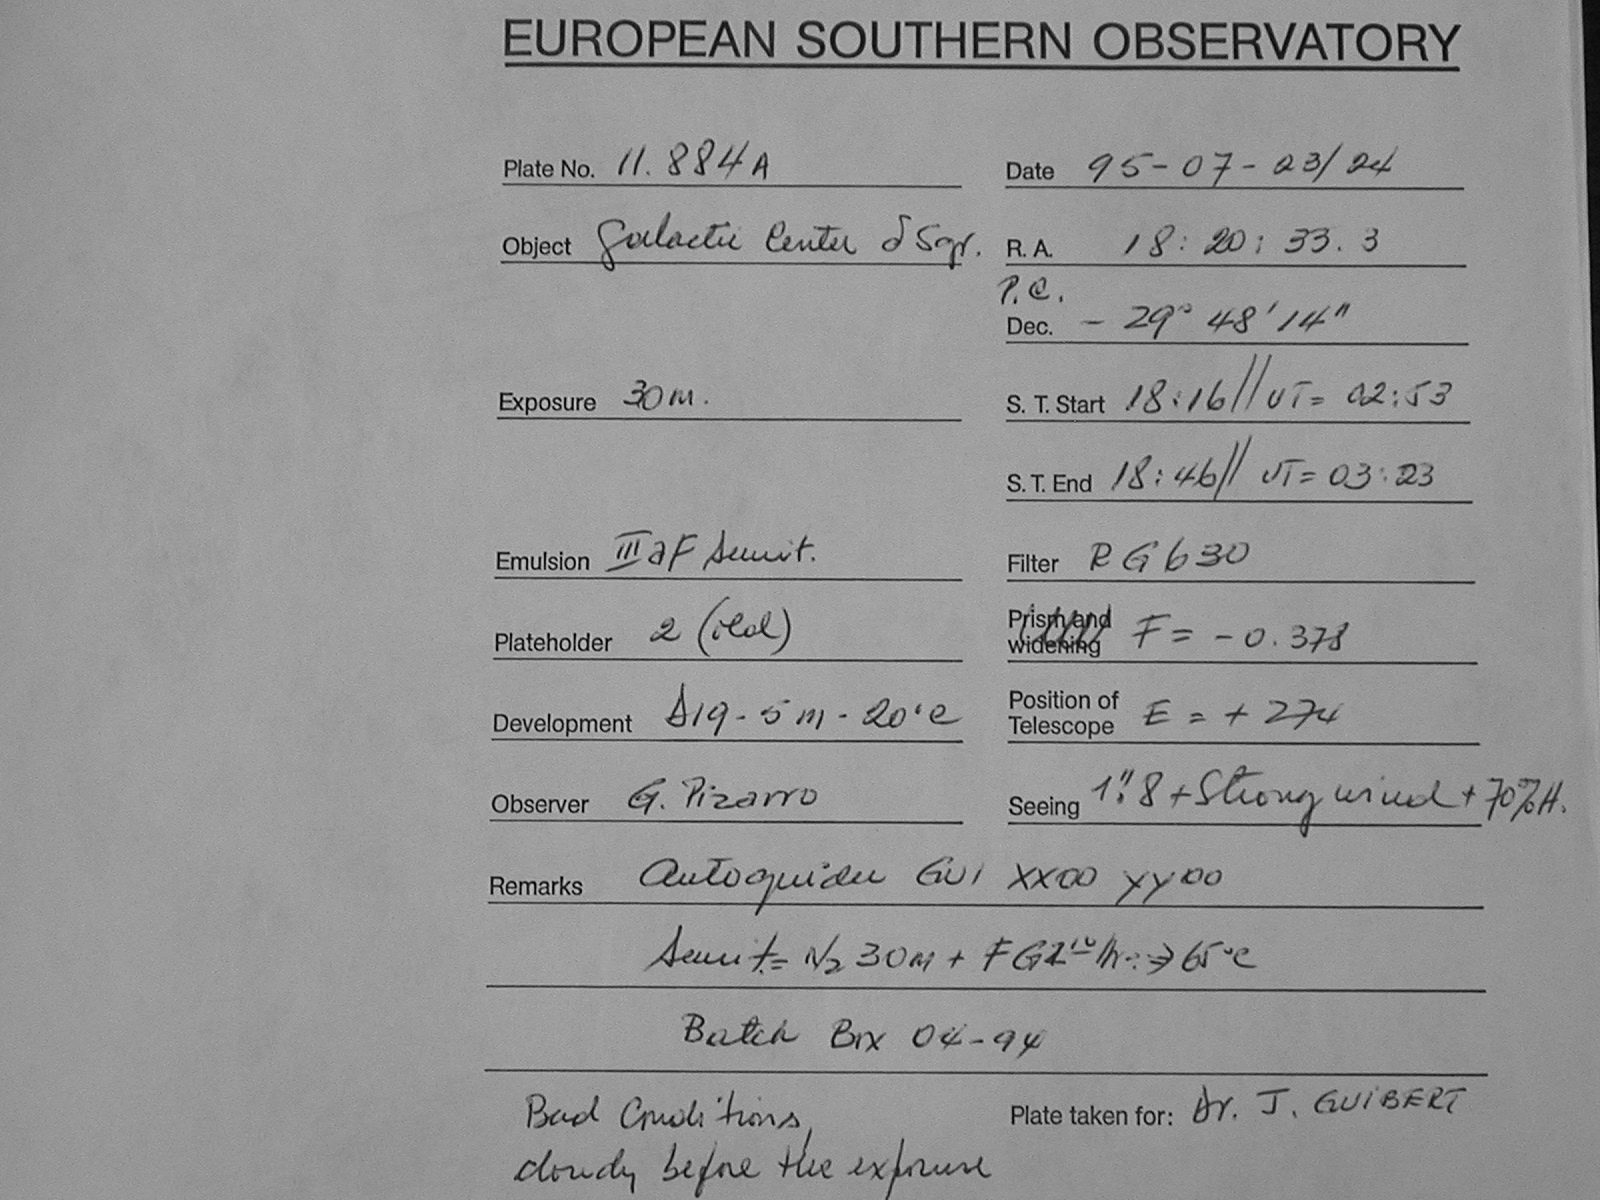 EUROPEAN SOUTHERN OBSERVATORY
Plate No. 11.884A Date 95-07-23/24
Object Galactic Center δ Sgr. R. A. 18:20:33.3
P.C.
Dec. - 29° 48' 14"
Exposure 30m. S. T. Start 18:16// UT= 02:53
S. T. End 18:46// UT= 03:23
Emulsion IIIaF Sensit. Filter RG630
Plateholder 2 (old) Prism and widening F = -0.378
Development D19-5m-20°C Position of Telescope E = + 274
Observer G. Pizarro Seeing 1".8 + Strong wind + 70%H.
Remarks Autoguider GUI XX00 YY00
Sensit.= N2 30m + FG 65°C
Batch Box 04-94
Bad Conditions, Plate taken for: Dr. J. GUIBERT
cloudy before the exposure